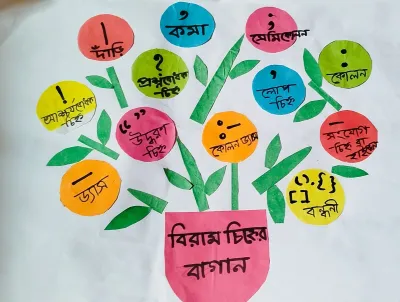 ।
দাঁড়ি
,
কমা
;
সেমিকোলন
?
প্রশ্নবোধক
চিহ্ন
:
কোলন
!
আশ্চর্যবোধক
-চিহ্ন
“ ”
উদ্ধরণ
-চিহ্ন
’
লোপ
চিহ্ন
:—
কোলন ড্যাস
—
সংযোগ
-চিহ্ন বা
হাইফেন
—
ড্যাস
( ), { }
[ ]
বন্ধনী
বিরাম চিহ্নের
বাগান